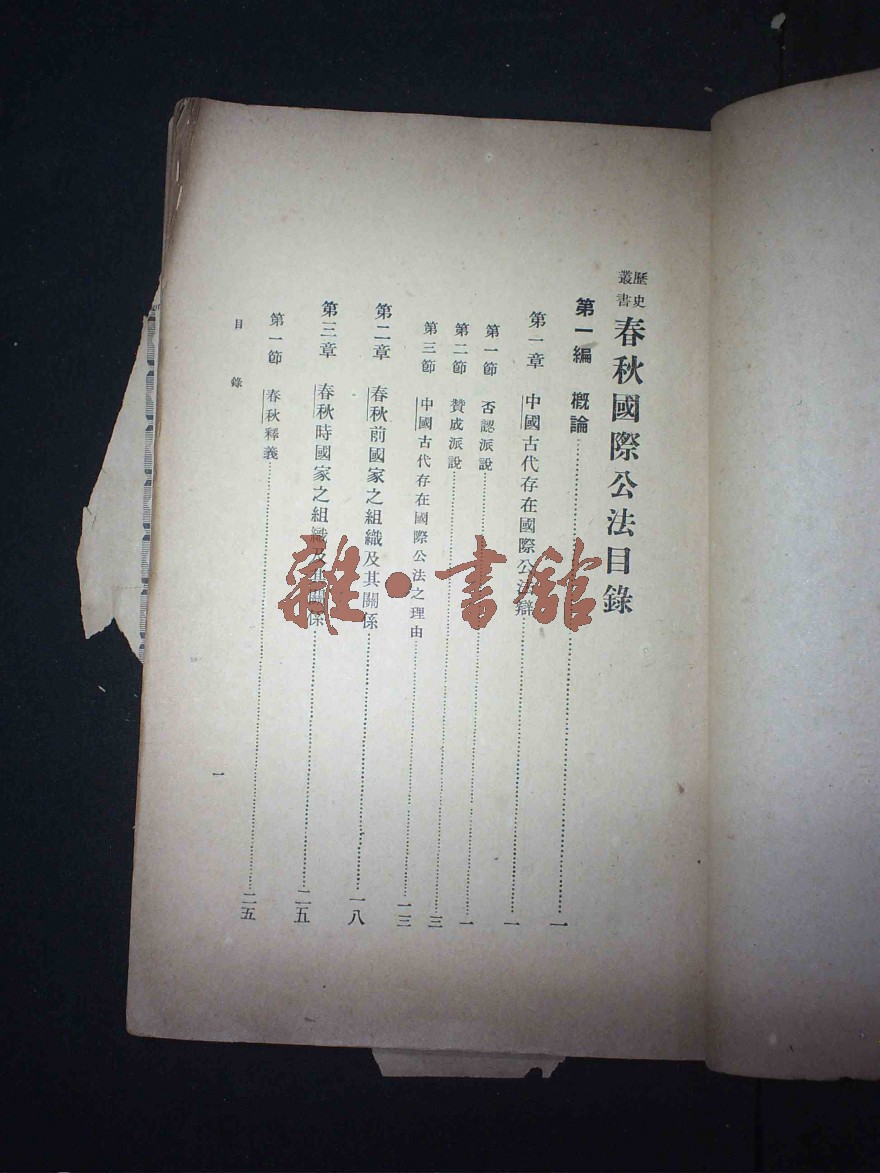 歷史叢書 春秋國際公法目錄
第一編 概論……一
第一章 中國古代存在國際公法辯……一
第一節 否認派說……一
第二節 贊成派說……三
第三節 中國古代存在國際公法之理由……一三
第二章 春秋前國家之組織及其關係……一八
第三章 春秋時國家之組織及其關係……二五
第一節 春秋釋義……二五
目錄
一
雜·書館